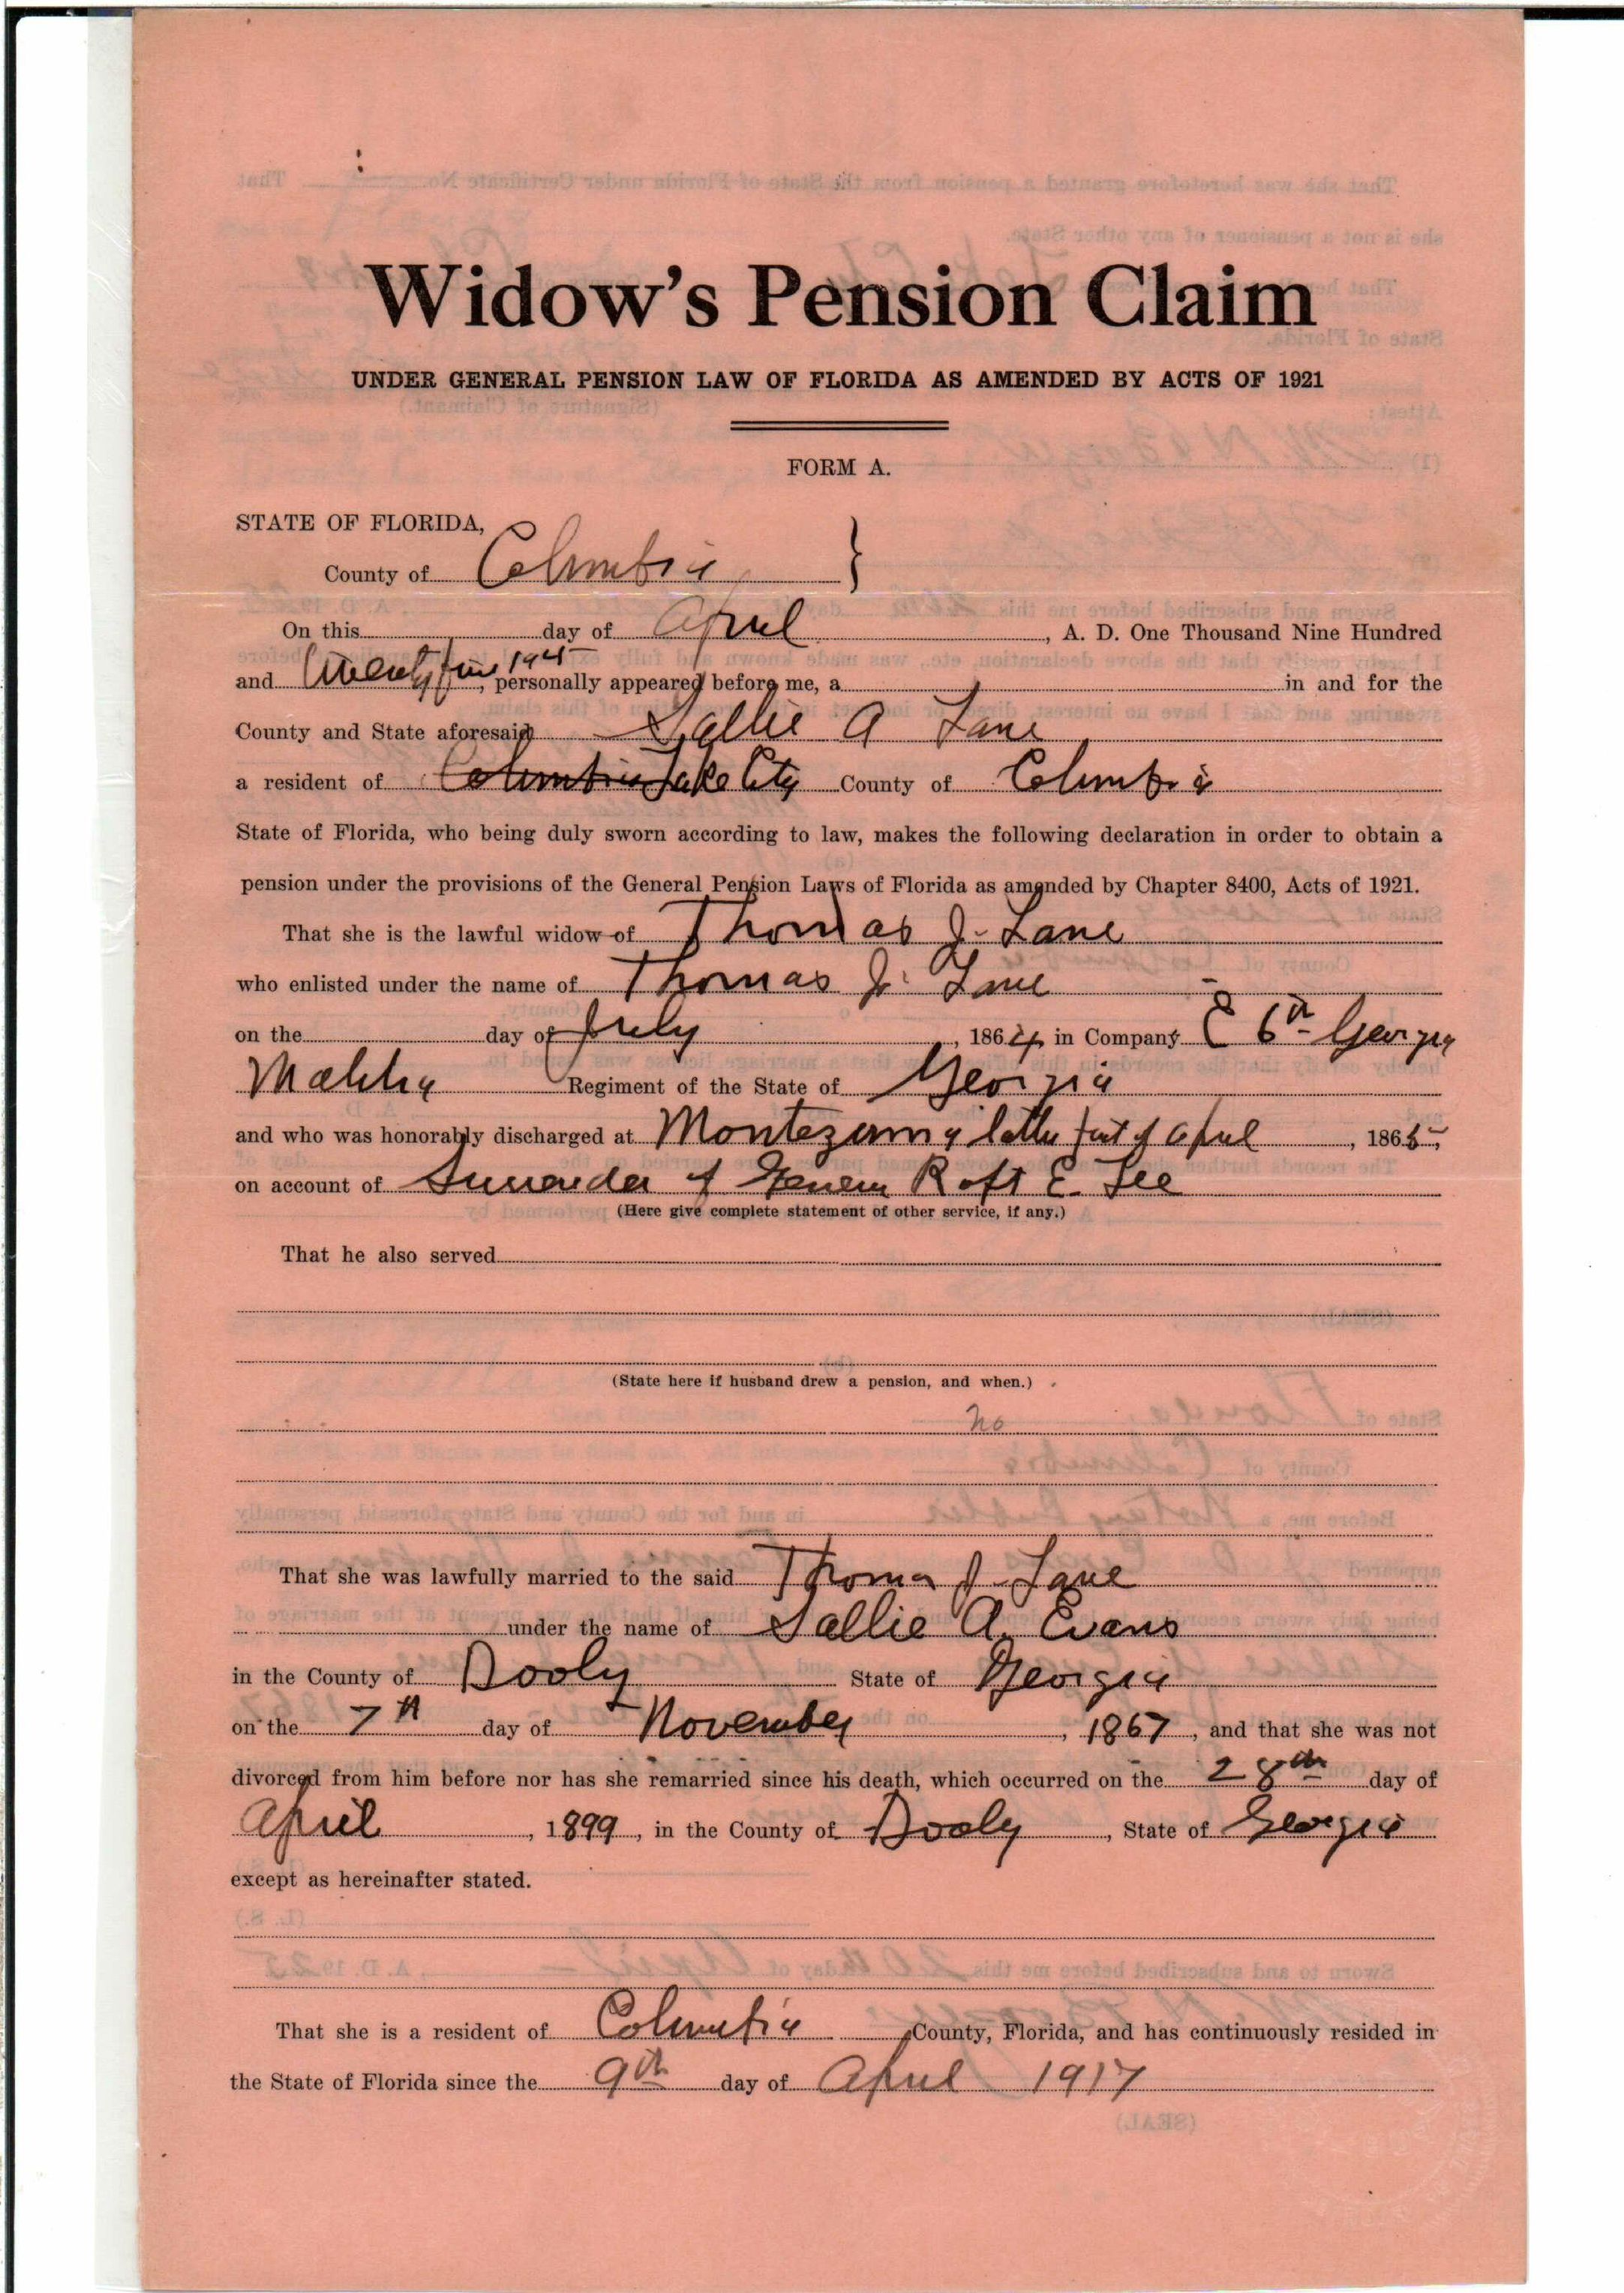 Widow's Pension Claim
UNDER GENERAL PENSION LAW OF FLORIDA AS AMENDED BY ACTS OF 1921
FORM A.
STATE OF FLORIDA,
County of Columbia }
On this day of April, A. D. One Thousand Nine Hundred
and Twenty five, personally appeared before me, a in and for the
County and State aforesaid Sallie A Lane
a resident of Columbia Lake City County of Columbia
State of Florida, who being duly sworn according to law, makes the following declaration in order to obtain a
pension under the provisions of the General Pension Laws of Florida as amended by Chapter 8400, Acts of 1921.
That she is the lawful widow of Thomas J. Lane
who enlisted under the name of Thomas J. Lane
on the day of July, 1864 in Company E 6th Georgia
Regiment of the State of Georgia
and who was honorably discharged at Montezuma latter part of April, 1865,
on account of Surrender of General Robt E. Lee
(Here give complete statement of other service, if any.)
That he also served
(State here if husband drew a pension, and when.)
no
That she was lawfully married to the said Thomas J. Lane
under the name of Sallie A. Evans
in the County of Dooly State of Georgia
on the 7th day of November, 1867, and that she was not
divorced from him before nor has she remarried since his death, which occurred on the 28th day of
April, 1899, in the County of Dooly, State of Georgia
except as hereinafter stated.
That she is a resident of Columbia County, Florida, and has continuously resided in
the State of Florida since the 9th day of April 1917